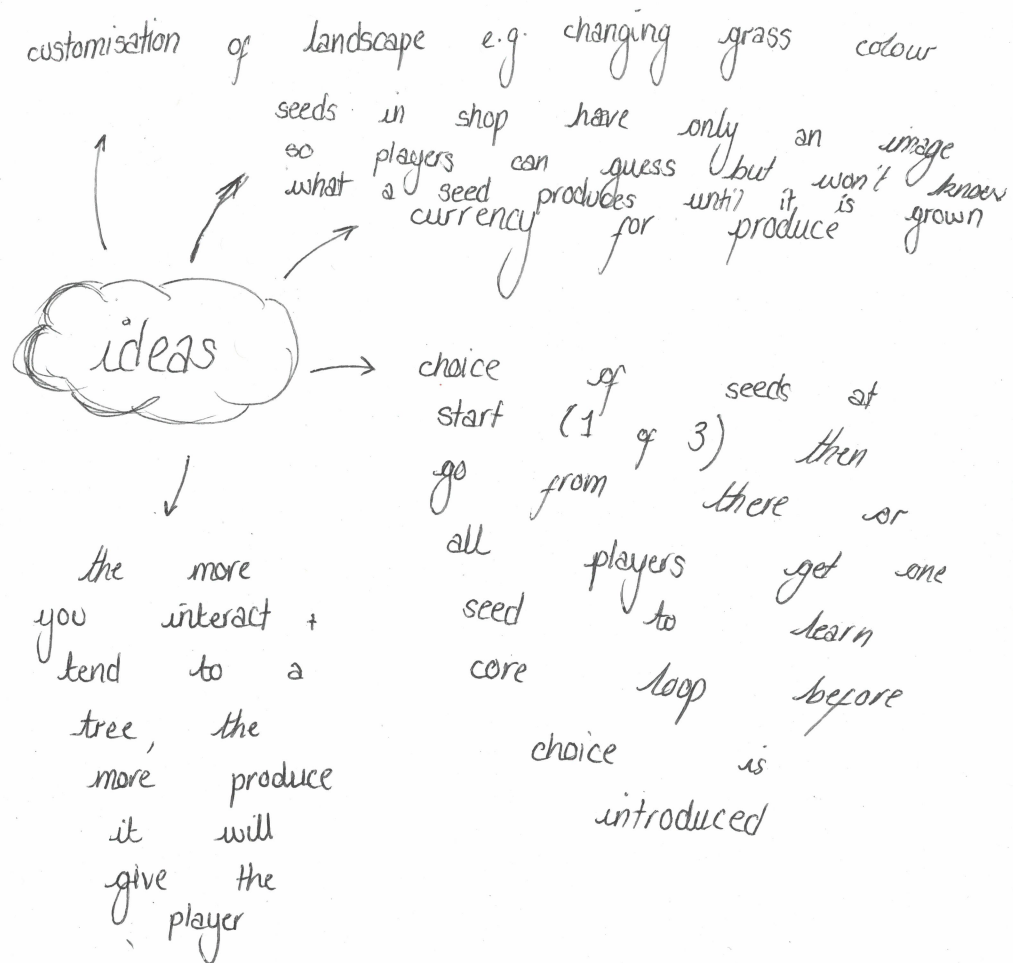 customisation of landscape e.g. changing grass colour
seeds in shop have only an image
so players can guess but won't know
what a seed produces until it is grown
currency for produce
ideas
choice of seeds at
start (1 of 3) then
go from there or
all players get one
seed to learn
core loop before
choice is
introduced
the more
you interact +
tend to a
tree, the
more produce
it will
give the
player